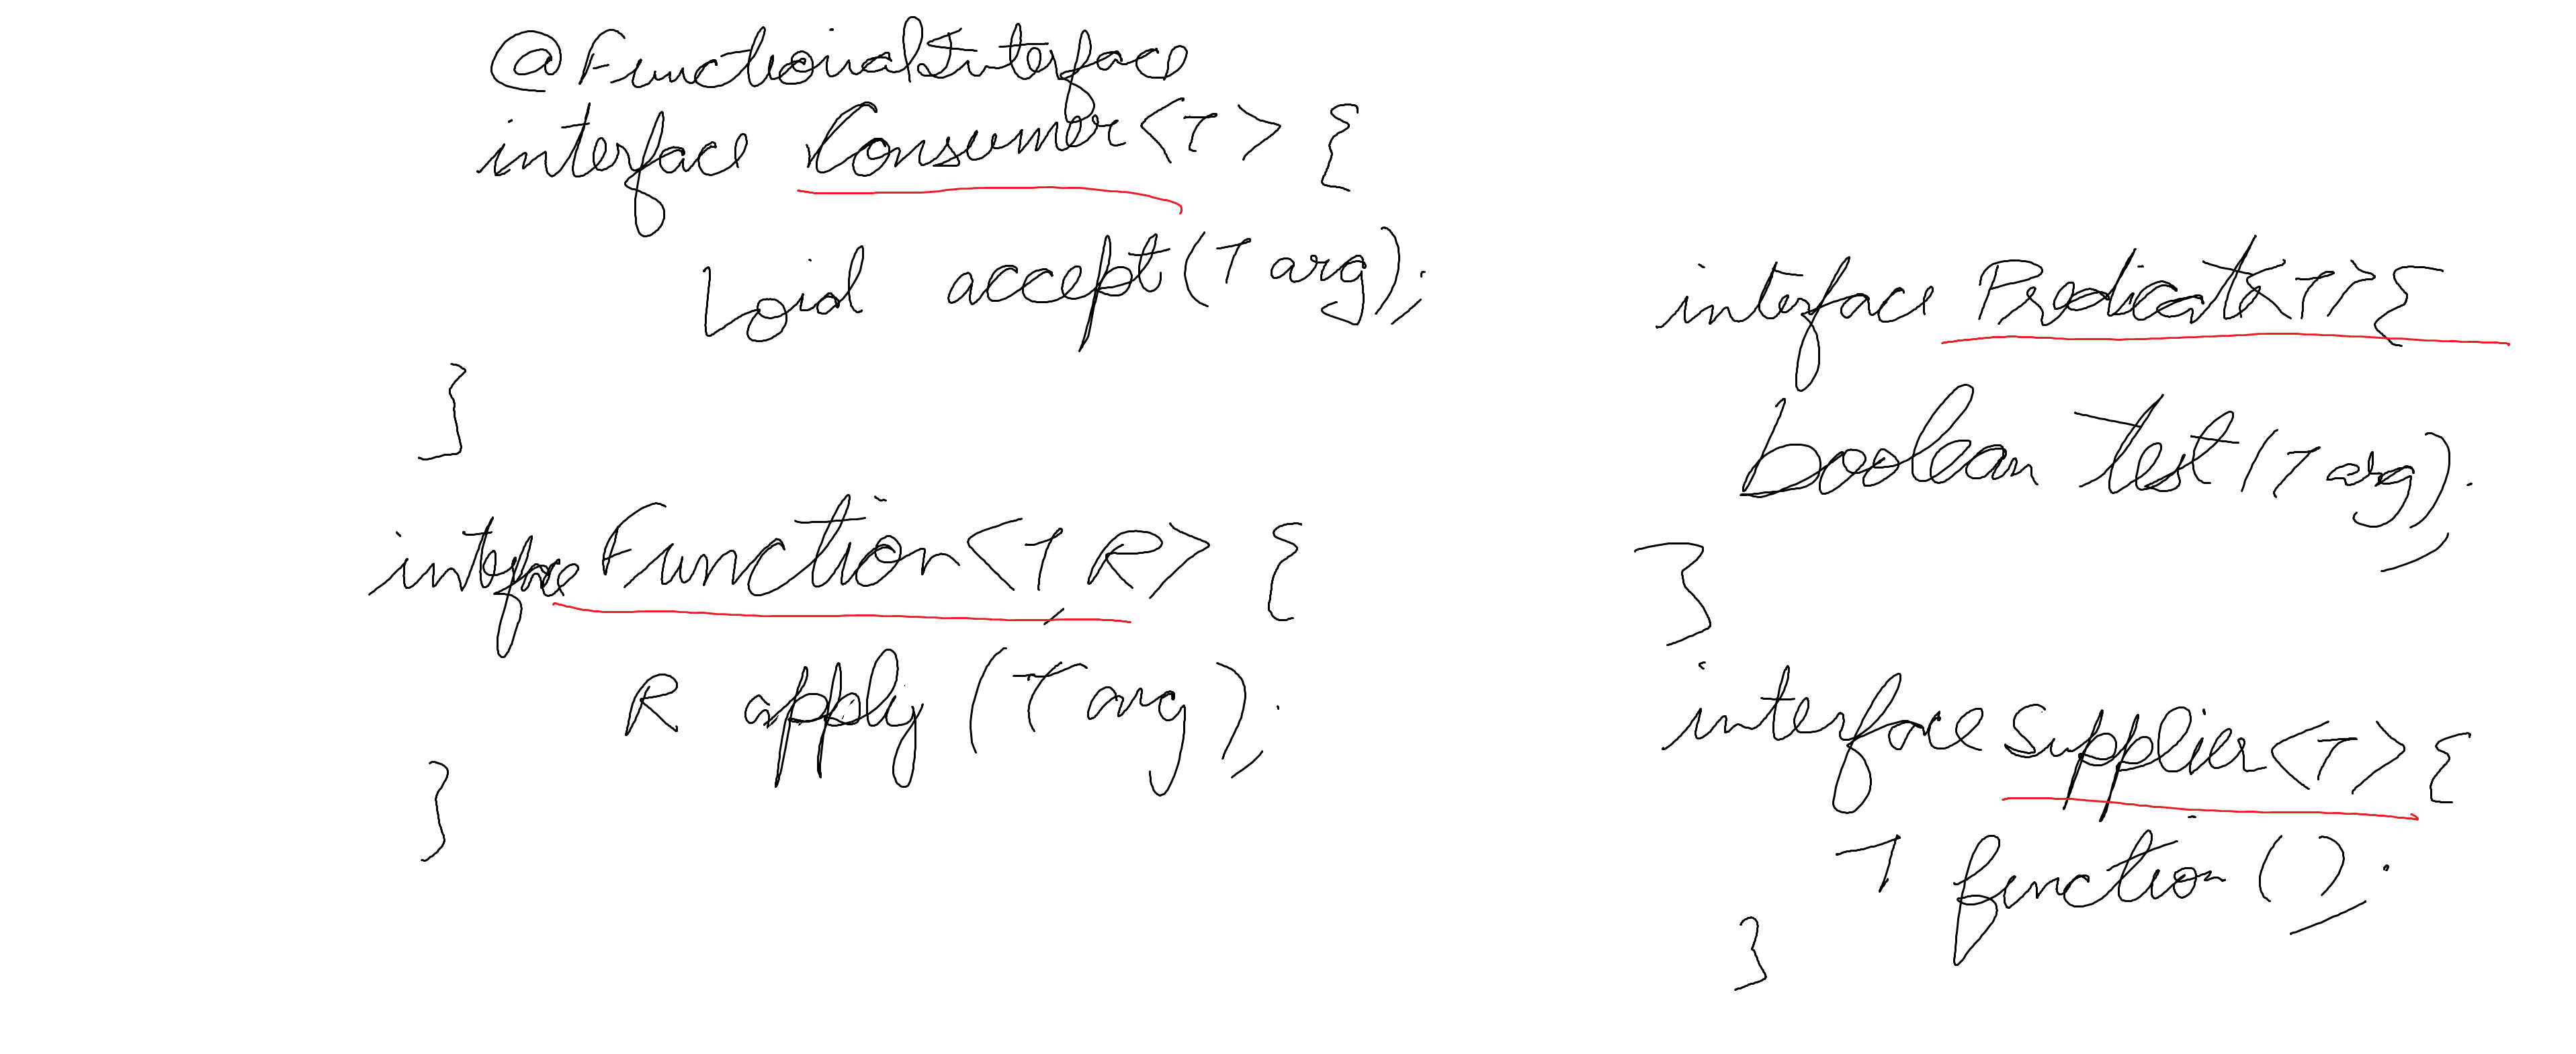 @FunctionalInterface
interface Consumer<T> {
void accept(T arg);
}
interface Function<T, R> {
R apply(T arg);
}
interface Predicate<T>{
boolean test(T arg);
}
interface Supplier<T>{
T function();
}